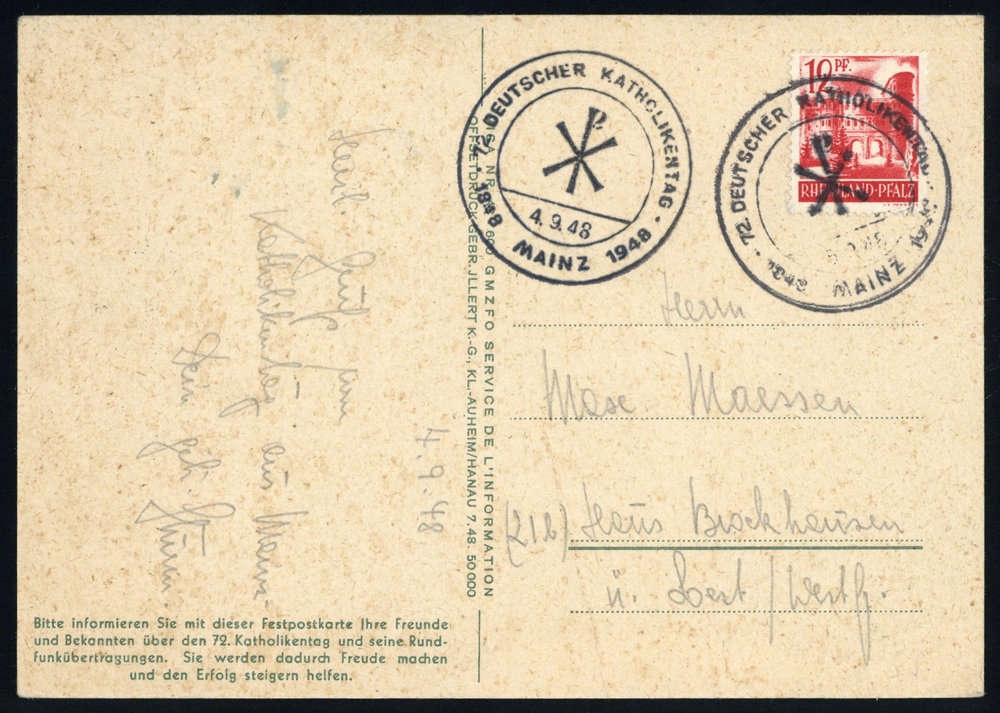 12 PF.
RHEINLAND-PFALZ
· 72. DEUTSCHER KATHOLIKENTAG · 1948 MAINZ 1948
4.9.48
· 72. DEUTSCHER KATHOLIKENTAG · 1948 MAINZ 1948
GMZFO SERVICE DE L'INFORMATION
OFFSETDRUCK GEBR. JLLERT K.-G., KL.-AUHEIM/HANAU 7.48 50000
4.9.48
Katholikentag aus Mainz.
Dein
Herrn
Maessen
(21b) Haus Brockhausen
ü. Soest/Westf.
Bitte informieren Sie mit dieser Festpostkarte Ihre Freunde
und Bekannten über den 72. Katholikentag und seine Rund-
funkübertragungen. Sie werden dadurch Freude machen
und den Erfolg steigern helfen.